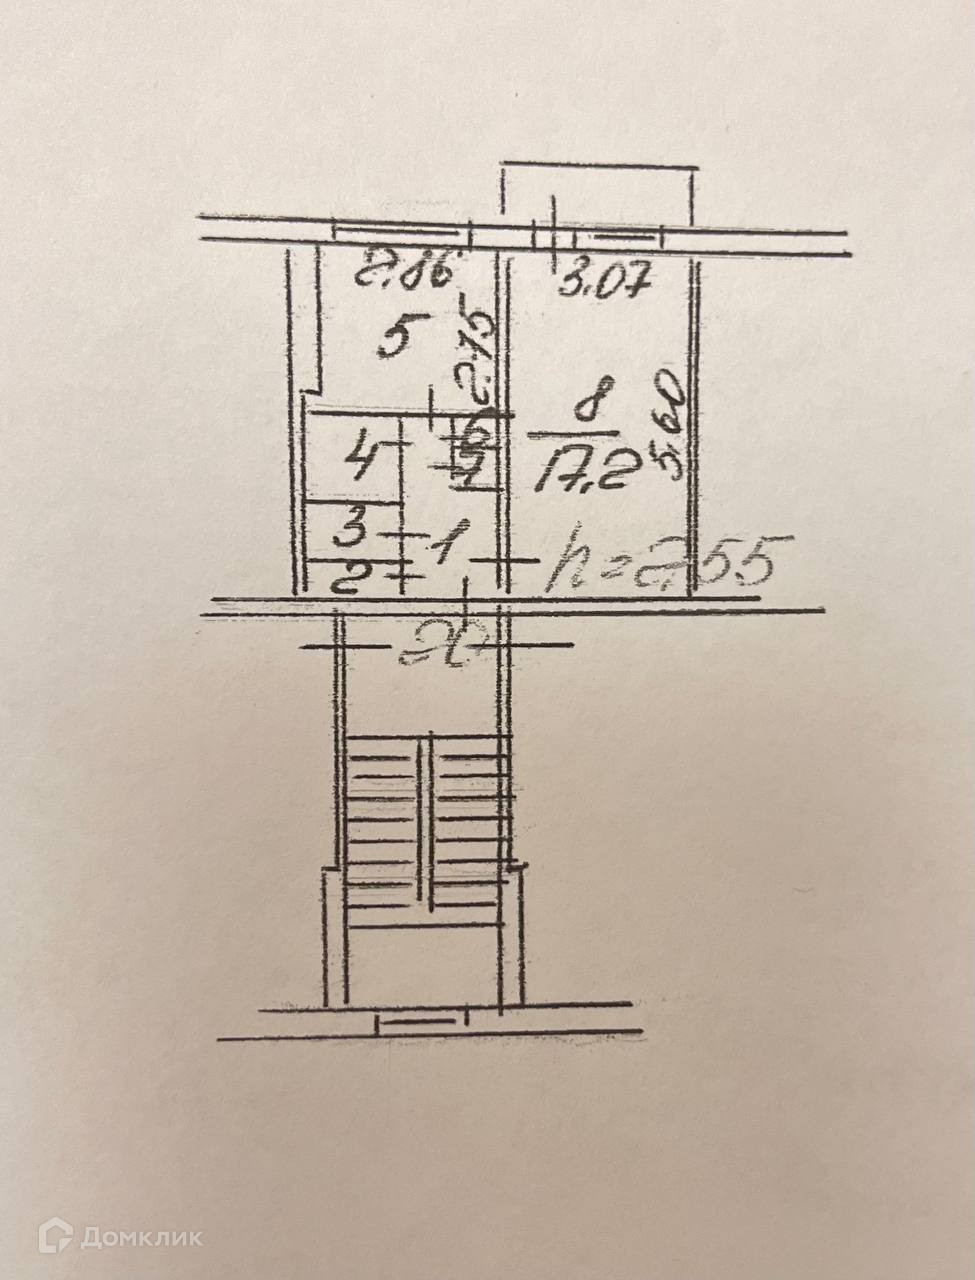 2.86
3.07
5
2.45
8
17.2
5.60
4
6
7
3
1
2
h=2,55
20
Домклик